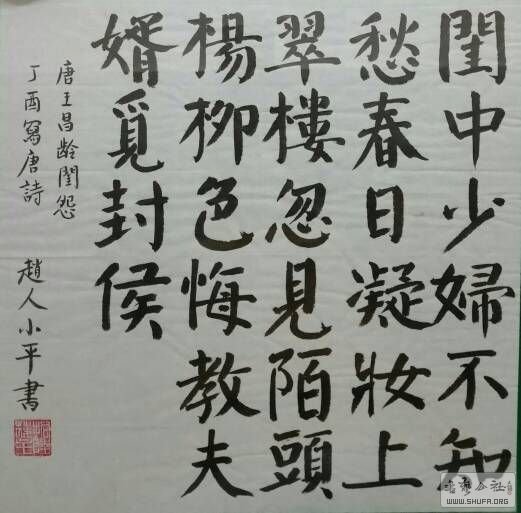 閨中少婦不知
愁春日凝妝上
翠樓忽見陌頭
楊柳色悔教夫
婿覓封侯
唐王昌龄閨怨
丁酉寫唐詩
趙人小平書
WWW.SHUFA.ORG